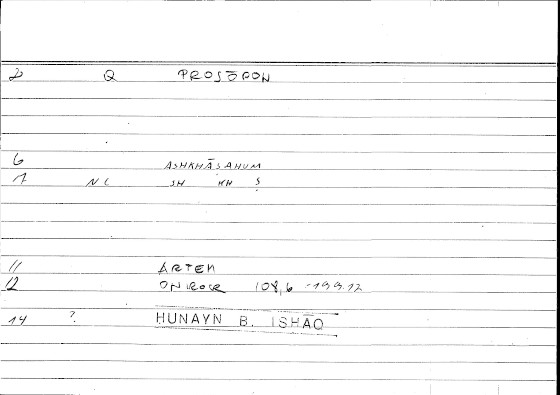 2 Q PROSŌPON
6 ASHKHĀṢAHUM
7 NC SH KH Ṣ
11 ARTEM
12 ONIROCR 108,6 -199.12
14 ? HUNAYN B. ISHĀQ